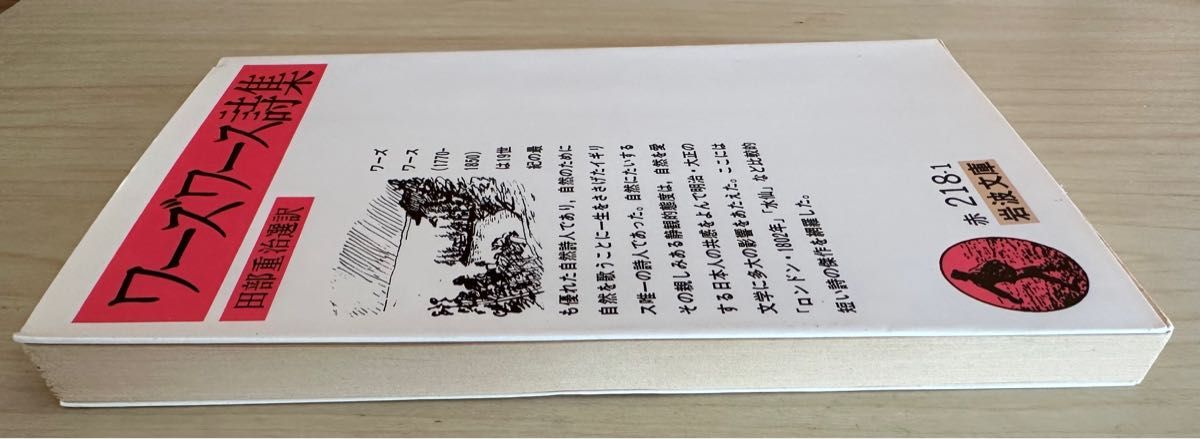 ワーズワース詩集
田部重治選訳
ワーズ
ワース
(1770-
1850)
は19世
紀の最
も優れた自然詩人であり，自然のために
自然を歌うことに一生をささげたイギリ
ス唯一の詩人であった。自然にたいする
その親しみある静観的態度は，自然を愛
する日本人の共感をよんで明治・大正の
文学に多大の影響をあたえた。ここには
「ロンドン・1802年」「水仙」など比較的
短い詩の傑作を網羅した。
赤 218-1
岩波文庫